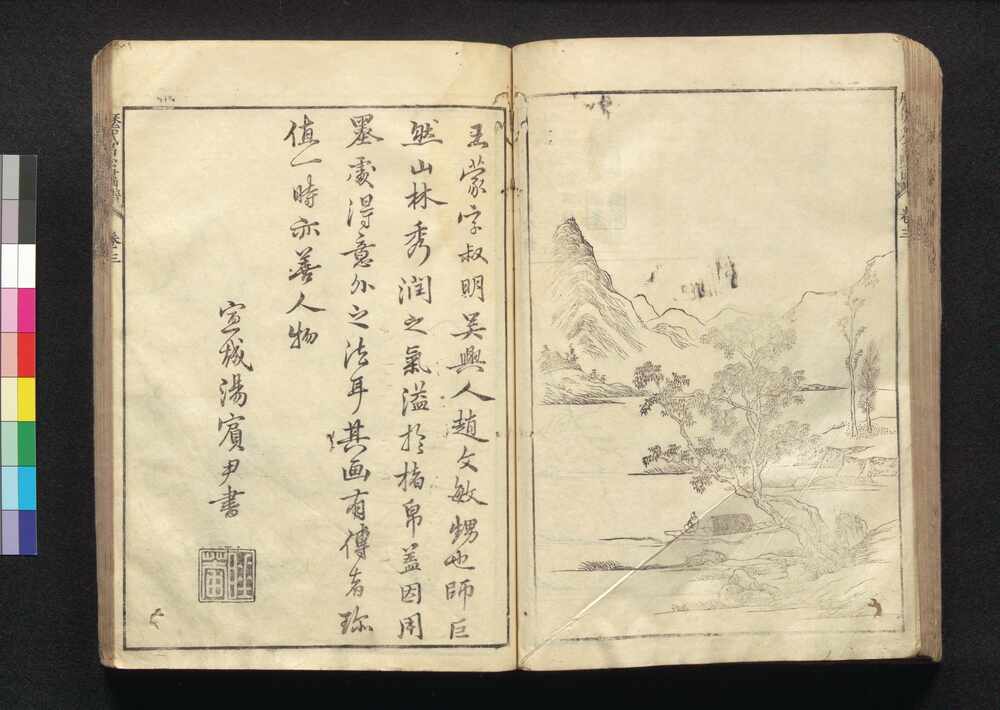 王蒙字叔明吴興人趙文敏甥也師巨
然山林秀潤之氣溢於楮帛蓋因用
墨處得意外之法耳其画有傳者珎
值一時亦善人物
宣城湯賓尹書
卷三
卷三